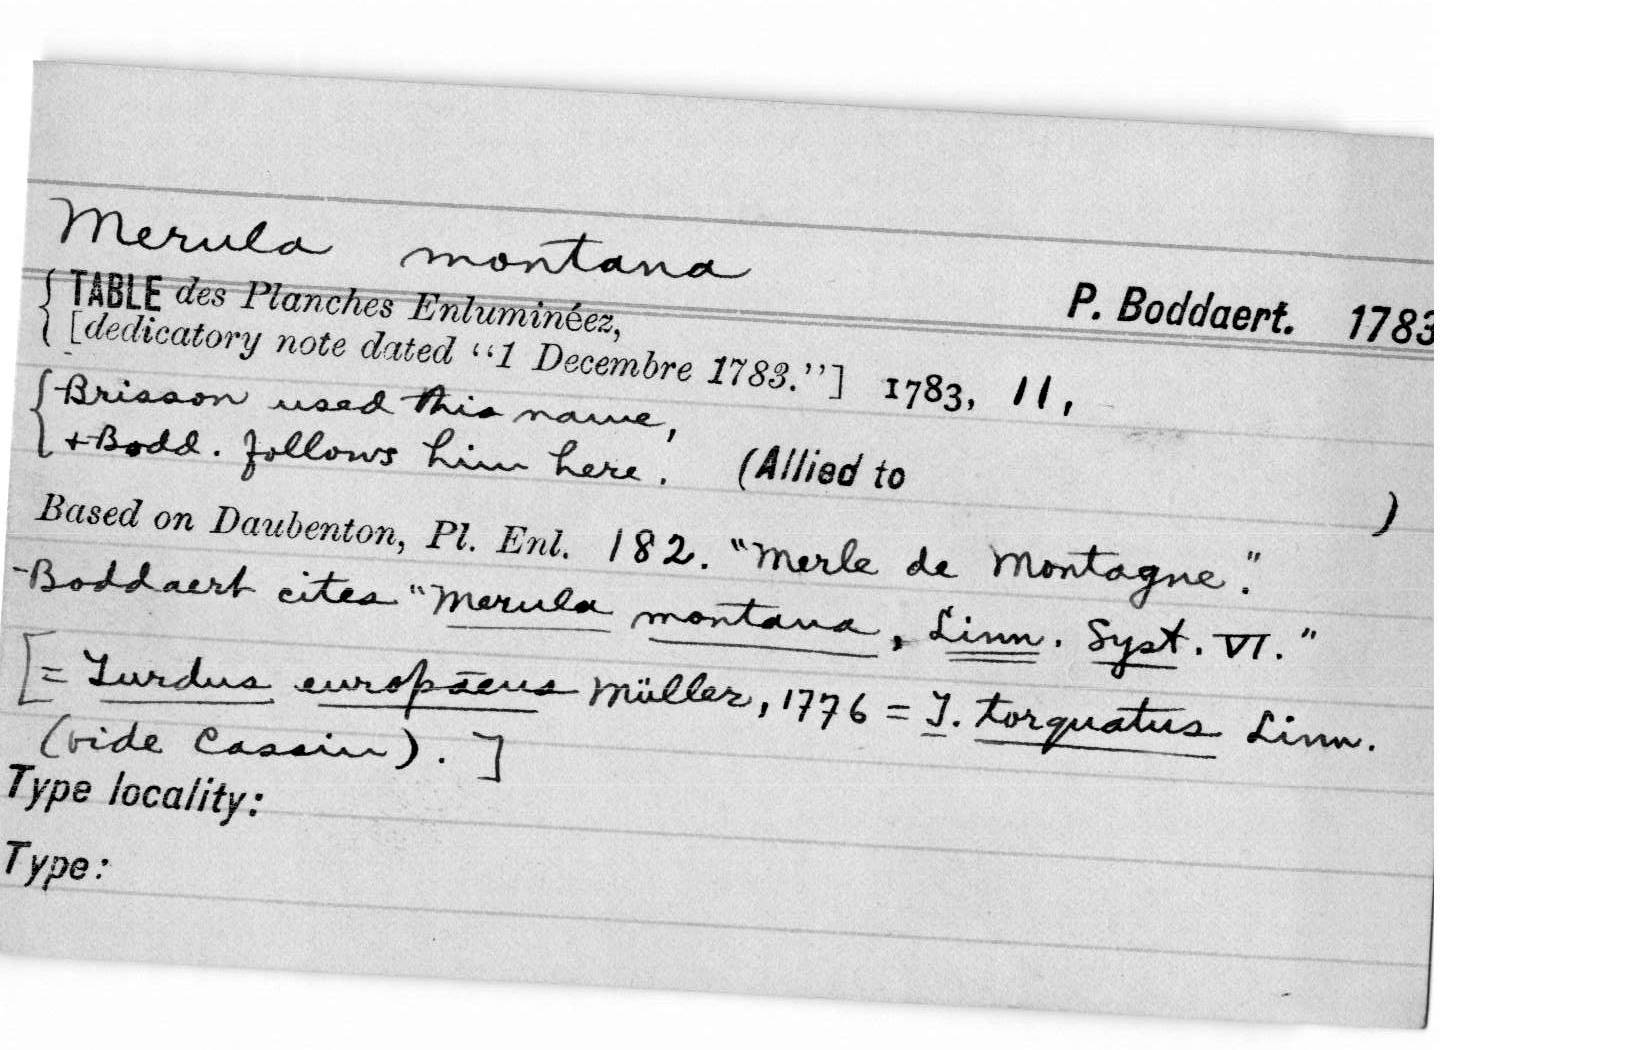 Merula montana
P. Boddaert. 1783
{ TABLE des Planches Enluminéez,
[dedicatory note dated "1 Decembre 1783."] 1783, 11,
{ Brisson used this name,
+ Bodd. follows him here. (Allied to )
Based on Daubenton, Pl. Enl. 182. "Merle de Montagne".
Boddaert cites "Merula montana, Linn. Syst. VI."
[= Turdus europaeus Müller, 1776 = T. torquatus Linn.
(vide Cassin). ]
Type locality:
Type: